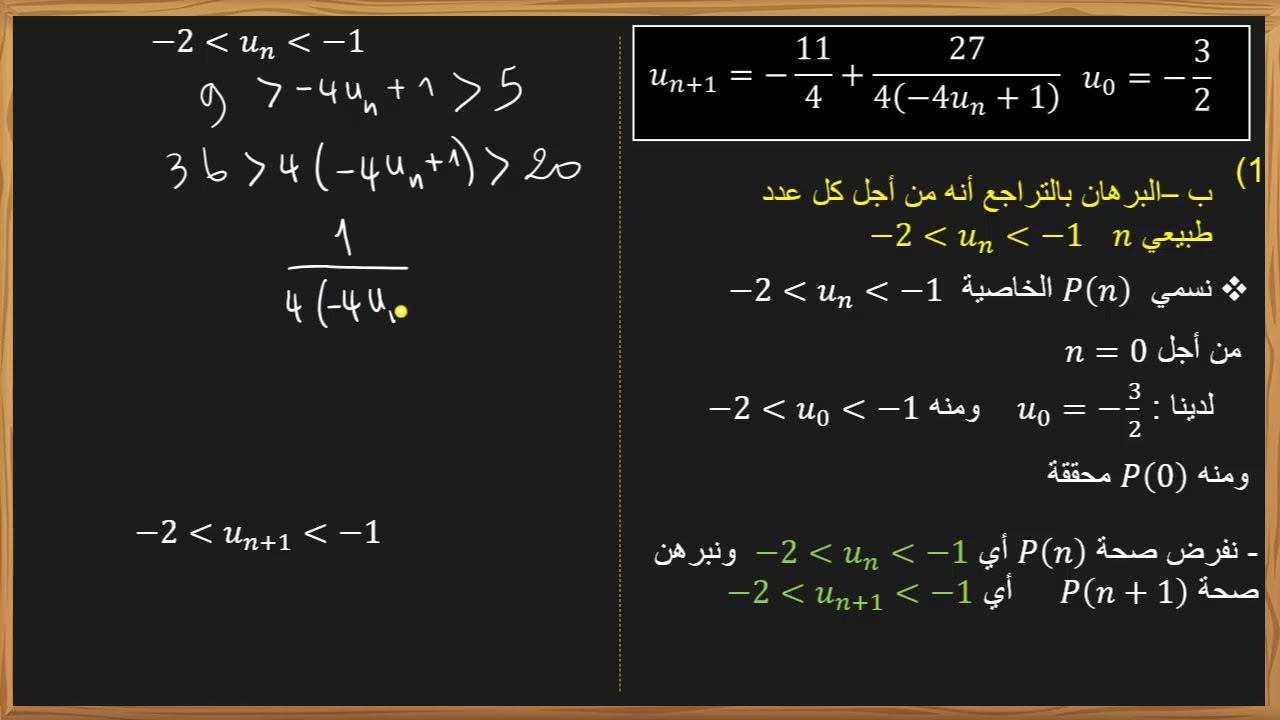 u_{n+1} = -\frac{11}{4} + \frac{27}{4(-4u_n + 1)}   u_0 = -\frac{3}{2}
1)
ب – البرهان بالتراجع أنه من أجل كل عدد
طبيعي n   -2 < u_n < -1
❖ نسمي P(n) الخاصية -2 < u_n < -1
من أجل n = 0
لدينا : u_0 = -\frac{3}{2} ومنه -2 < u_0 < -1
ومنه P(0) محققة
- نفرض صحة P(n) أي -2 < u_n < -1 ونبرهن
صحة P(n + 1) أي -2 < u_{n+1} < -1
-2 < u_n < -1
9 > -4u_n + 1 > 5
36 > 4(-4u_n + 1) > 20
\frac{1}{4(-4u_n}
-2 < u_{n+1} < -1